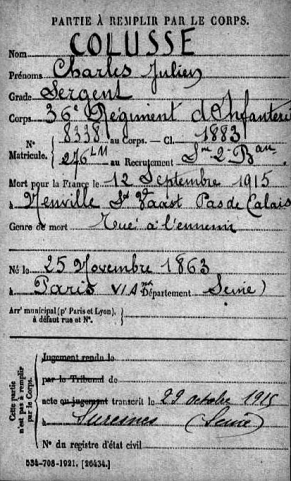 PARTIE À REMPLIR PAR LE CORPS.
Nom COLUSSE
Prénoms Charles Julien
Grade Sergent
Corps 36e Régiment d'Infanterie
N° Matricule. 8338 au Corps. - Cl. 1883
276 LM au Recrutement Sne 2e Bau
Mort pour la France le 12 Septembre 1915
à Neuville St Vaast Pas de Calais
Genre de mort Tué à l'ennemi
Né le 25 Novembre 1863
à Paris VI Arr Département Seine)
Arrt municipal (pr Paris et Lyon),
à défaut rue et N°.
Cette partie n'est pas à remplir par le Corps.
Jugement rendu le
par le Tribunal de
acte ou jugement transcrit le 29 octobre 1915
à Suresnes (Seine)
N° du registre d'état civil
534-708-1921. [26434.]